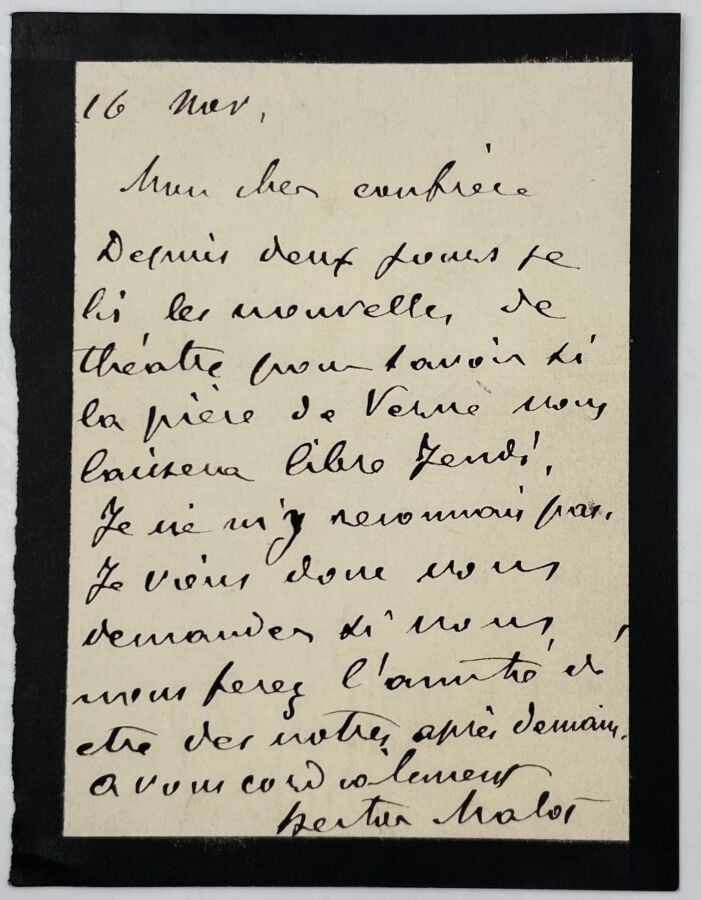 16 Nov,
Mon cher confrère
Depuis deux jours je
lis les nouvelles de
théatre pour savoir si
la pièce de Verne vous
laissera libre Jeudi,
Je ne m'y reconnais pas.
Je viens donc vous
demander si vous
nous ferez l'amitié d'
etre des notres après demain.
a vous cordialement
Hector Malot